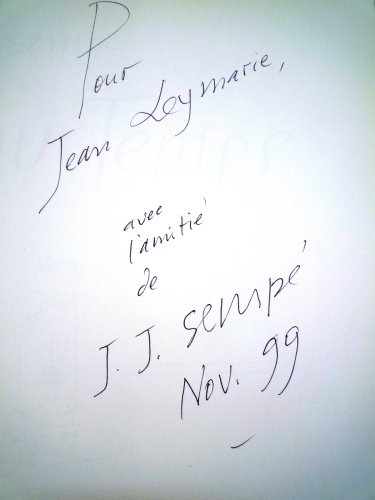 Pour
Jean Leymarie,
avec
l'amitié
de
J. J. Sempé
Nov. 99